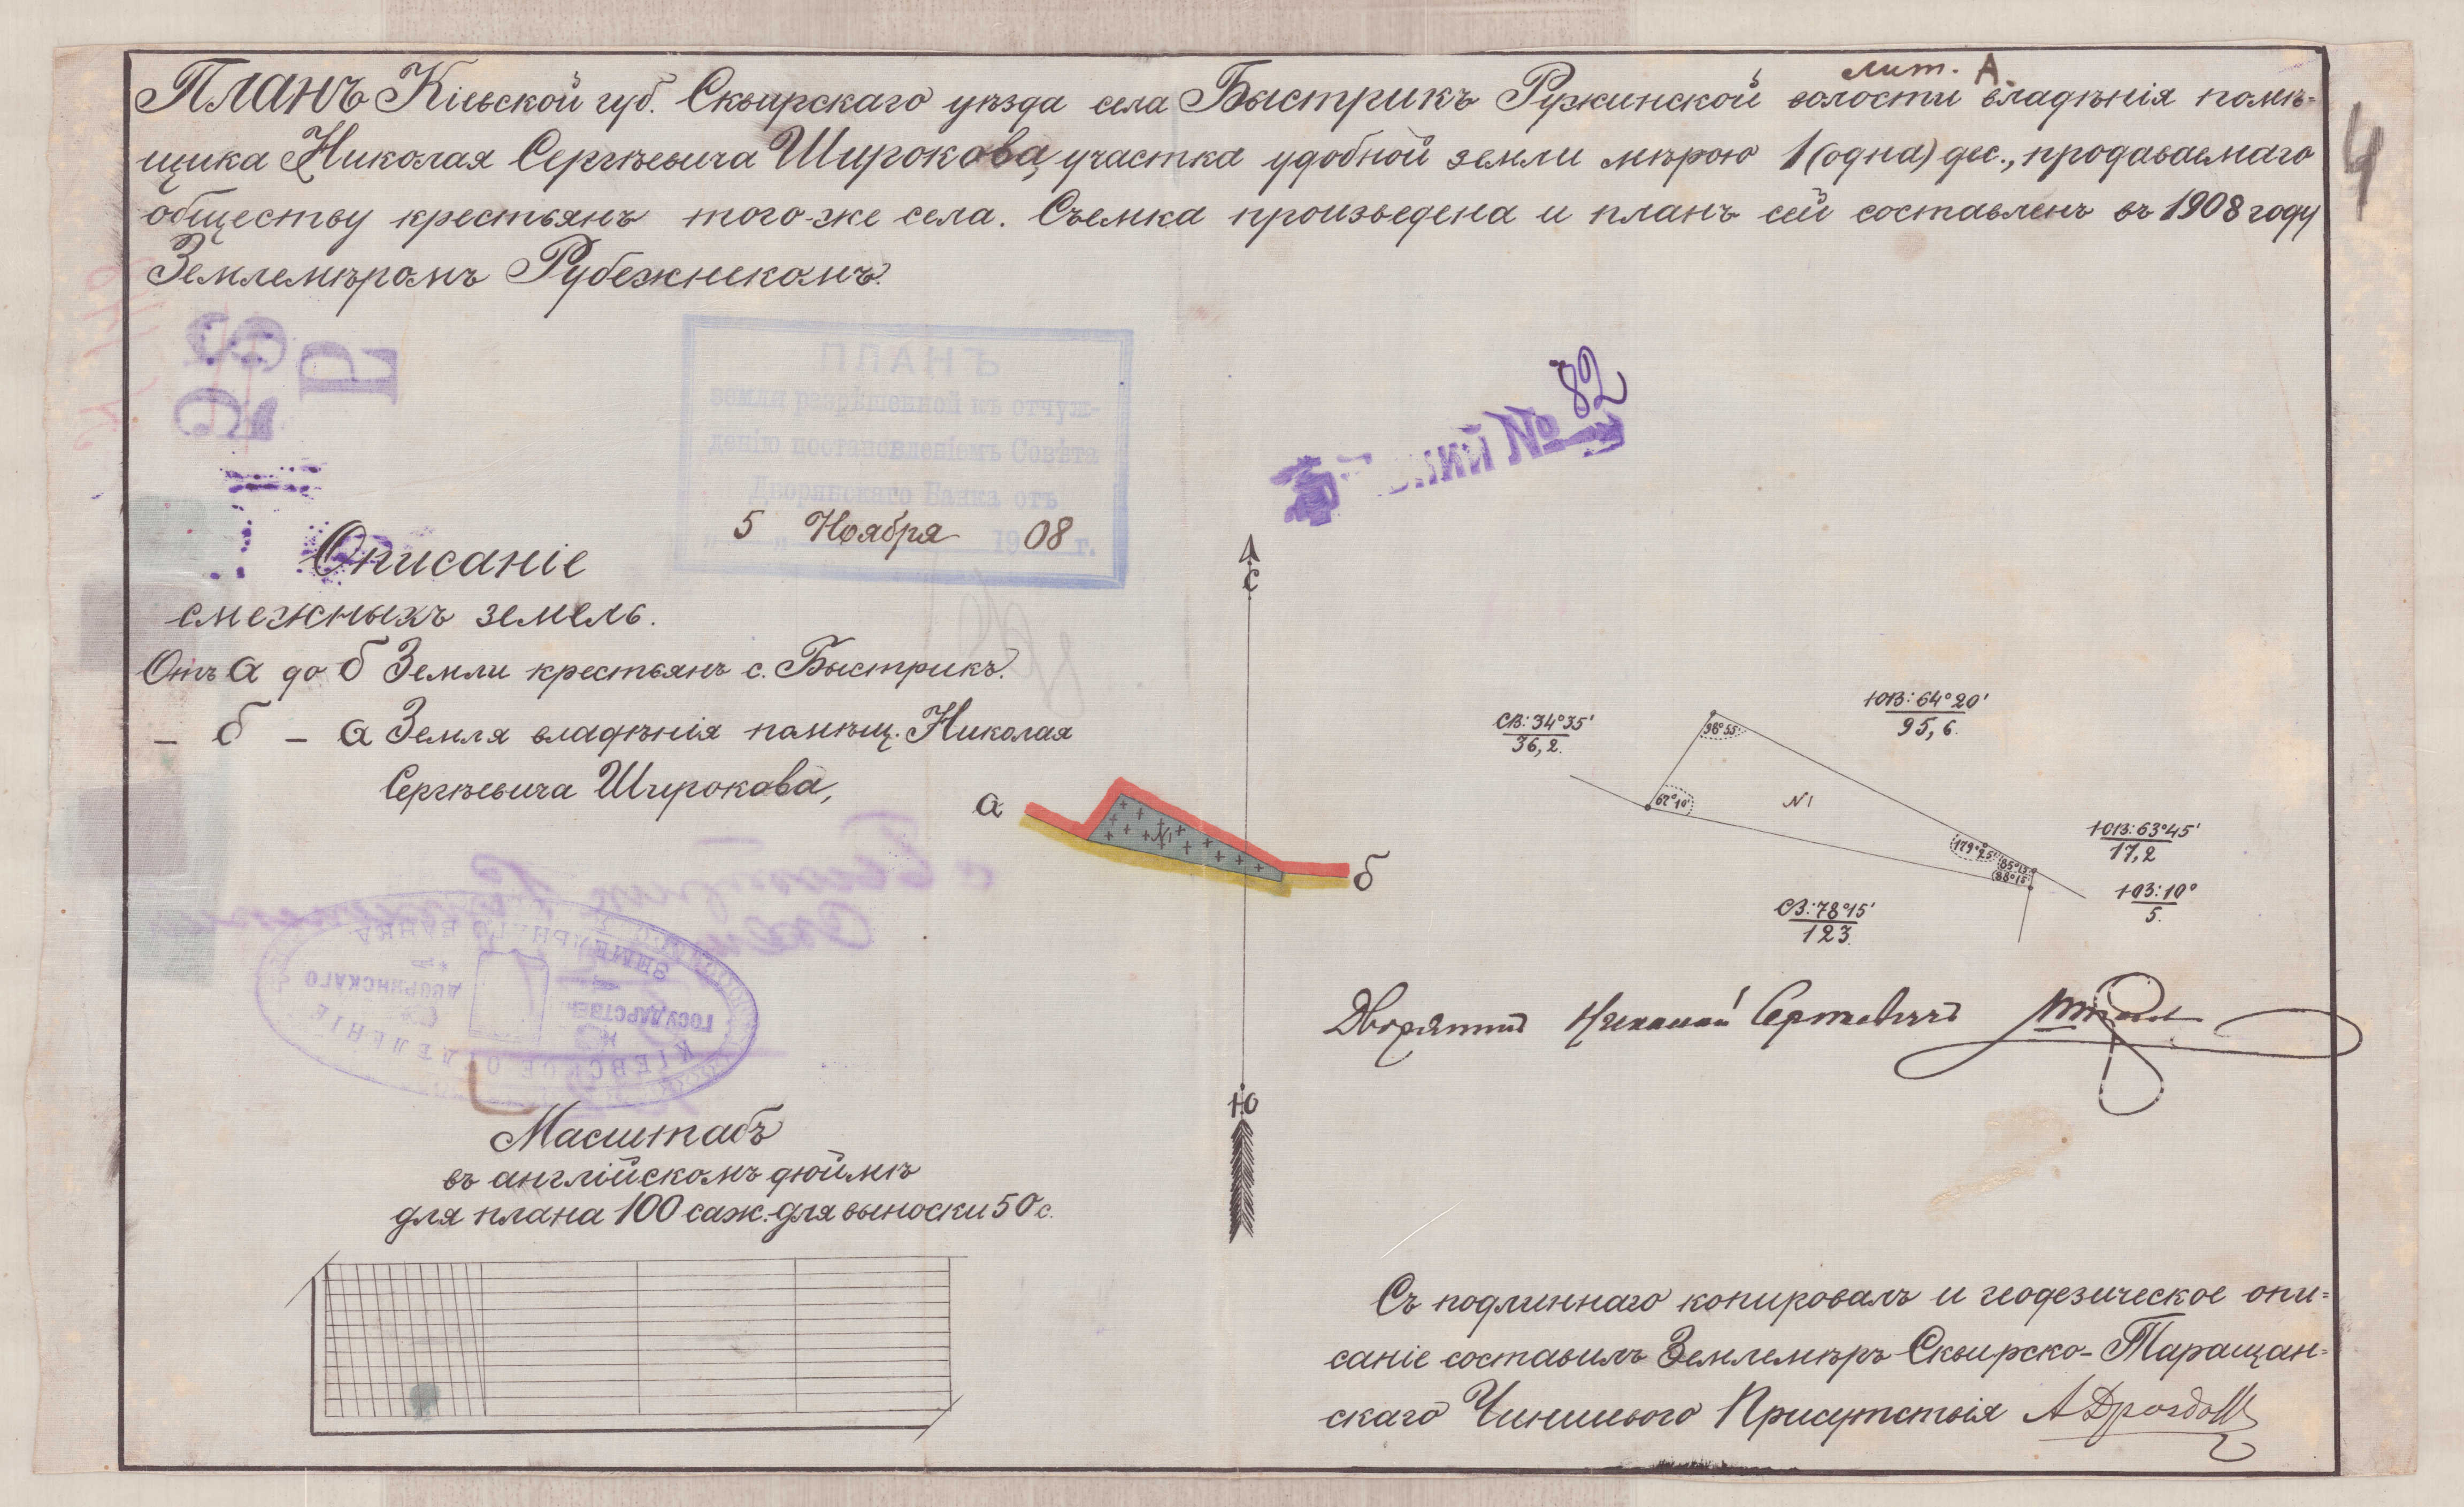 лит. А.
Планъ Кіевской губ. Сквирскаго уѣзда села Быстрикъ Ружинской волости владѣнія помѣ=
щика Николая Сергѣевича Широкова, участка удобной земли мѣрою 1 (одна) дес., продаваемаго
обществу крестьянъ того-же села. Съемка произведена и планъ сей составленъ въ 1908 году
Землемѣромъ Рубежнекомъ.
4
ПЛАНЪ
земли разрѣшенной къ отчуж-
денію постановленіемъ Совѣта
Дворянскаго Банка отъ
5 Ноября 1908 г.
№ 82
Описаніе
смежныхъ земель.
Отъ а до б Земли крестьянъ с. Быстрикъ.
– б – а Земля владѣнія помѣщ. Николая
Сергѣевича Широкова,
С
а
N1
б
СВ: 34°35'
36,2.
ЮВ: 64°20'
95,6.
98°55'
67°10'
N1
179°25'
85°15'
88°15'
ЮВ: 63°45'
17,2
ЮЗ: 10°
5.
СЗ: 78°15'
123.
ЗЕМЕЛЬНАГО БАНКА
ГОСУДАРСТВЕН.
ДВОРЯНСКАГО
КІЕВСКОЕ ОТДѢЛЕНІЕ
Дворянинъ Николай Сергѣевичъ
Ю
Масштабъ
въ англійскомъ дюймѣ
для плана 100 саж. для выноски 50 с.
Съ подлиннаго копировалъ и геодезическое опи=
саніе составилъ Землемѣръ Сквирско-Таращан=
скаго Чиншеваго Присутствія А Дроздов